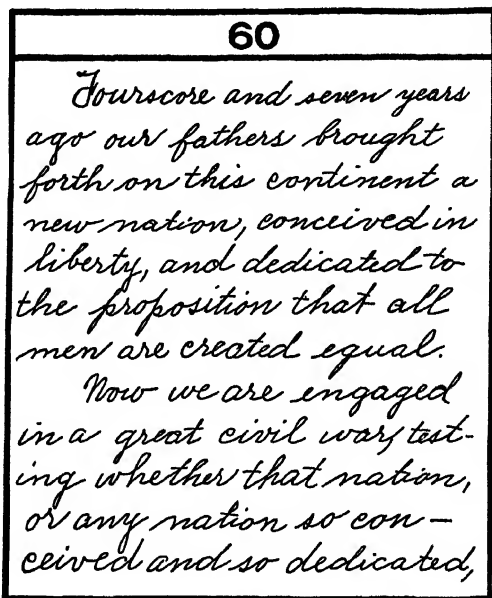 60
Fourscore and seven years
ago our fathers brought
forth on this continent a
new nation, conceived in
liberty, and dedicated to
the proposition that all
men are created equal.
Now we are engaged
in a great civil war, test-
ing whether that nation,
or any nation so con-
ceived and so dedicated,